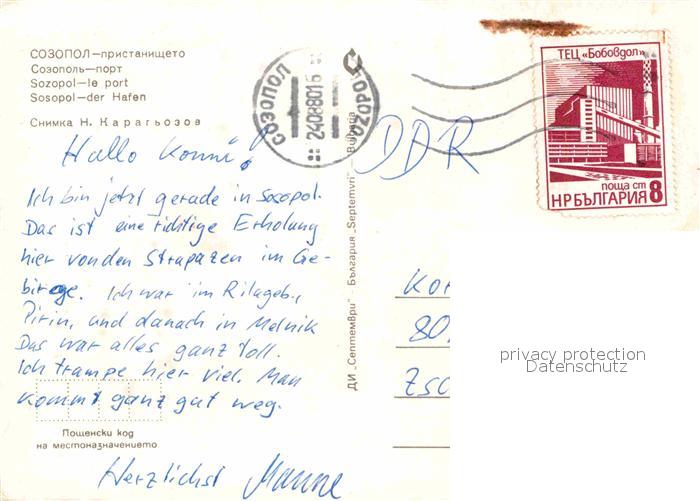 СОЗОПОЛ—пристанището
Созополь—порт
Sozopol—le port
Sosopol—der Hafen
Снимка Н. Карагьозов
Hallo Konni!
Ich bin jetzt gerade in Sosopol.
Das ist eine richtige Erholung
hier von den Strapazen im Ge-
birge. Ich war im Rilageb.,
Pirin, und danach in Melnik
Das war alles ganz toll.
Ich trampe hier viel. Man
kommt ganz gut weg.
Пощенски код
на местоназначението
Herzlichst
ДИ „Септември" - България „Septemvri" Bulgaria
СОЗОПОЛ
24088016
SOZOPOL
DDR
ТЕЦ „Бобовдол"
поща ст 8
НРБЪЛГАРИЯ
Kon
80
Zsc
privacy protection
Datenschutz